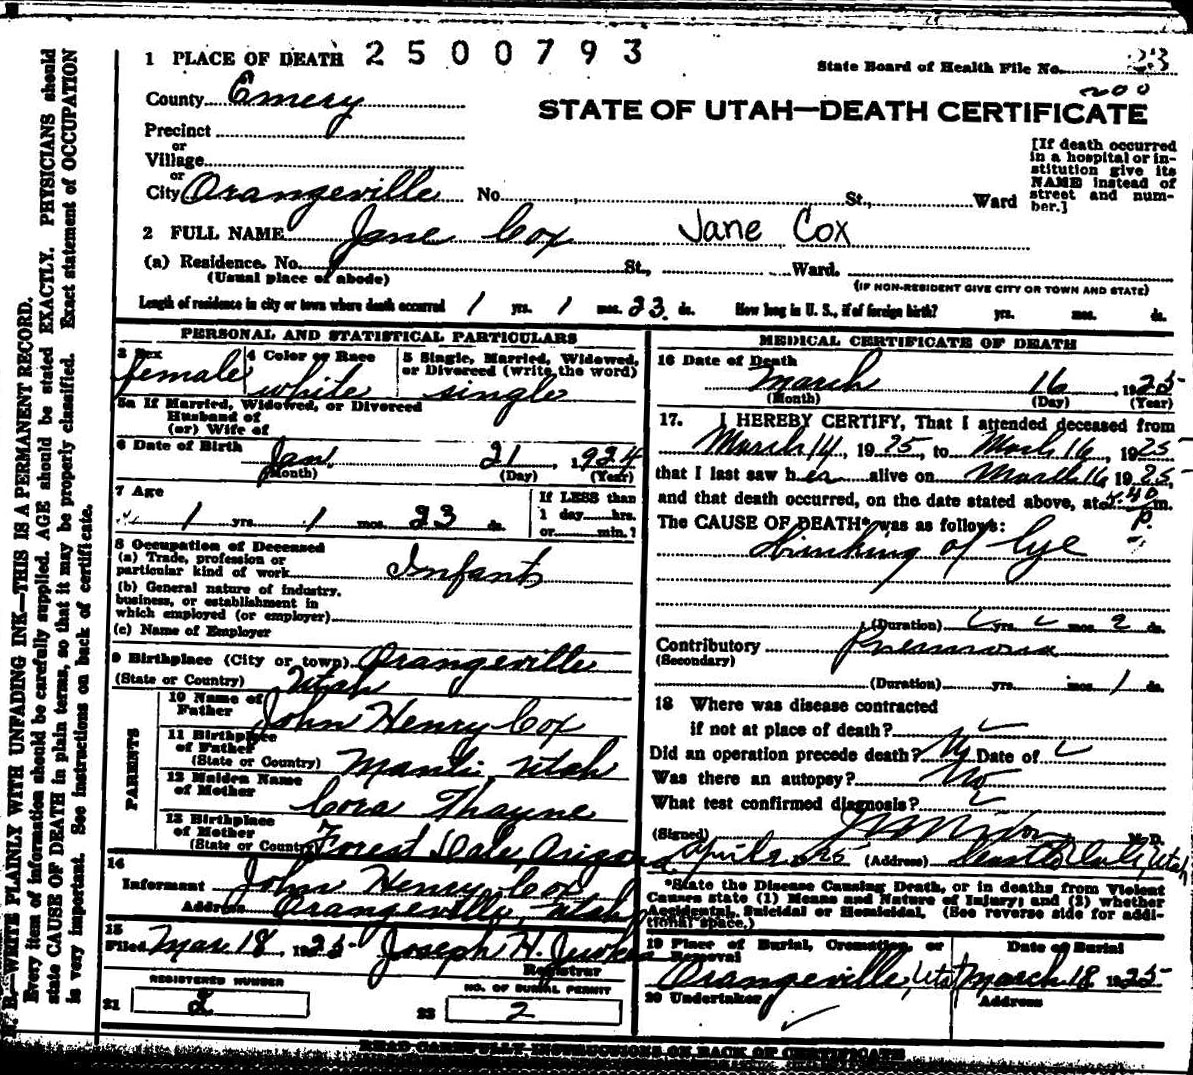 1 PLACE OF DEATH 2500793
State Board of Health File No. 23
200
County Emery
STATE OF UTAH—DEATH CERTIFICATE
Precinct
or
Village
or
City Orangeville No. St., Ward
[If death occurred
in a hospital or in-
stitution give its
NAME instead of
street and num-
ber.]
2 FULL NAME Jane Cox Jane Cox
(a) Residence. No. St., Ward.
(Usual place of abode)
(IF NON-RESIDENT GIVE CITY OR TOWN AND STATE)
Length of residence in city or town where death occurred 1 yrs. 1 mos. 23 ds. How long in U. S., if of foreign birth? yrs. mos. ds.
PERSONAL AND STATISTICAL PARTICULARS
3 Sex
female
4 Color or Race
white
5 Single, Married, Widowed,
or Divorced (write the word)
single
5a If Married, Widowed, or Divorced
Husband of
(or) Wife of
6 Date of Birth Jan. 21, 1924
(Month) (Day) (Year)
7 Age
1 yrs. 1 mos. 23 ds.
If LESS than
1 day hrs.
or min.?
8 Occupation of Deceased
(a) Trade, profession or
particular kind of work Infant
(b) General nature of industry,
business, or establishment in
which employed (or employer)
(c) Name of Employer
9 Birthplace (City or town) Orangeville
(State or Country) Utah
PARENTS
10 Name of
Father John Henry Cox
11 Birthplace
of Father
(State or Country) Manti, Utah
12 Maiden Name
of Mother Cora Thayne
13 Birthplace
of Mother
(State or Country) Forest Dale, Arizona
14
Informant John Henry Cox
Address Orangeville, Utah
15
Filed Mar. 18, 1925 Joseph H.
Registrar
REGISTERED NUMBER
21 2
NO. OF BURIAL PERMIT
22 2
MEDICAL CERTIFICATE OF DEATH
16 Date of Death
March 16, 1925
(Month) (Day) (Year)
17. I HEREBY CERTIFY, That I attended deceased from
March 14, 1925, to March 16, 1925
that I last saw her alive on March 16 1925,
and that death occurred, on the date stated above, at 5:40 P m.
The CAUSE OF DEATH* was as follows:
drinking of lye
(Duration) yrs. mos. 2 ds.
Contributory Pneumonia
(Secondary)
(Duration) yrs. mos. 1 ds.
18 Where was disease contracted
if not at place of death?
Did an operation precede death? No Date of
Was there an autopsy? No
What test confirmed diagnosis?
(Signed) M.D.
April 2 1925 (Address) Castle Dale, Utah
*State the Disease Causing Death, or in deaths from Violent
Causes state (1) Means and Nature of Injury; and (2) whether
Accidental, Suicidal or Homicidal. (See reverse side for addi-
tional space.)
19 Place of Burial, Cremation, or
Removal
Orangeville, Utah
Date of Burial
March 18 1925
20 Undertaker
Address
READ CAREFULLY INSTRUCTIONS ON BACK OF CERTIFICATE
N. B.—WRITE PLAINLY WITH UNFADING INK—THIS IS A PERMANENT RECORD.
Every item of information should be carefully supplied. AGE should be stated EXACTLY. PHYSICIANS should
state CAUSE OF DEATH in plain terms, so that it may be properly classified. Exact statement of OCCUPATION
is very important. See instructions on back of certificate.